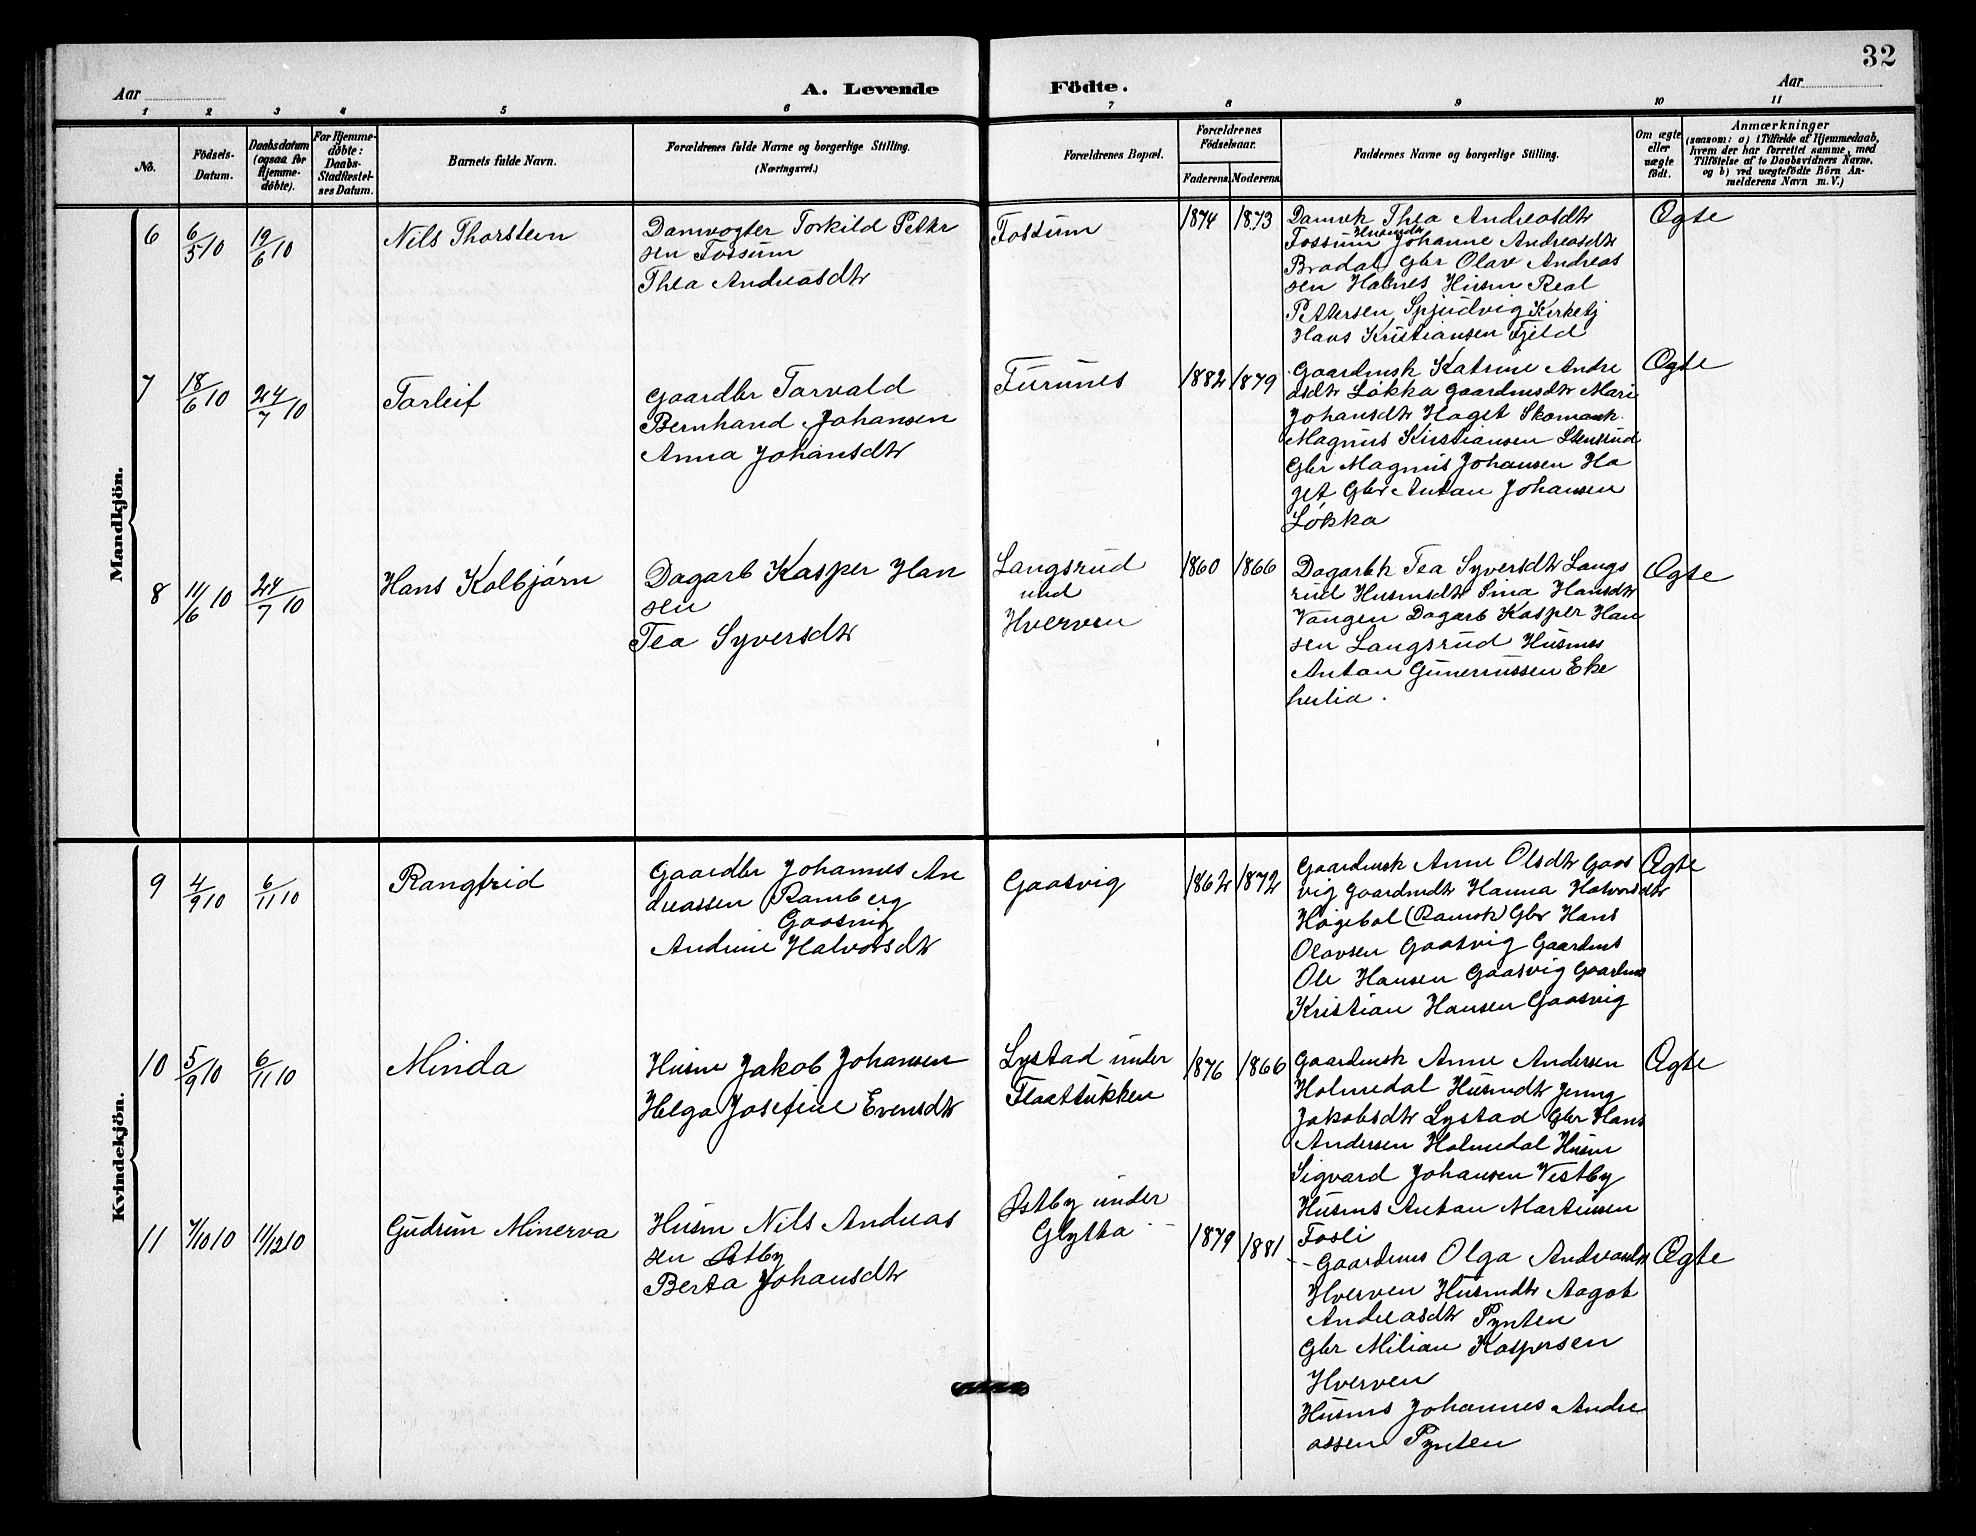 32
Aar
A. Levende
Födte.
Aar
1 2 3 4 5 6 7 8 9 10 11
No.
Födsels-
Datum.
Daabsdatum
(ogsaa for
Hjemme-
döbte).
For Hjemme-
döbte:
Daabs-
Stadfæstel-
ses Datum.
Barnets fulde Navn.
Forældrenes fulde Navne og borgerlige Stilling.
(Næringsvei.)
Forældrenes Bopæl.
Forældrenes
Födselsaar.
Faderens.
Moderens.
Faddernes Navne og borgerlige Stilling.
Om ægte
eller
uægte
födt.
Anmærkninger
(saasom: a) i Tilfælde af Hjemmedaab,
hvem der har forrettet samme, med
Tilföielse af to Daabsvidners Navne,
og b) ved uægtefödte Börn An-
melderens Navn m. V.)
Mandkjön.
6
6/5 10
19/6 10
Nils Thorstein
Damvogter Torkild Petter
sen Fossum
Thea Andreasdtr
Fossum
1874
1873
Damvk Thea Andreasdtr
Fossum Husmdtr Johanne Andreasdtr
Bradal, Gbr Olav Andreas
sen Holmes Husm Real
Pettersen Spjudvig Kirketj
Hans Kristiansen Fjeld
Ægte
7
18/6 10
24/7 10
Torleif
Gaardbr Torvald
Bernhard Johansen
Anna Johansdtr
Furunes
1882
1879
Gaardmsk Katrine Andre
asdtr Løkka Gaardmsdtr Mari
Johansdtr Haget Skomask.
Magnus Kristiansen Stensrud
Gbr Magnus Johansen Ha
get Gbr Anton Johansen
Løkka
Ægte
8
11/6 10
24/7 10
Hans Kolbjørn
Dagarb Kasper Han
sen
Tea Syversdtr
Langsrud
und
Hverven
1860
1866
Dagarbk Tea Syversdtr Langs
rud Husmsdtr Sina Hansdtr
Vangen Dagarb Kasper Han
sen Langsrud Husmes
Anton Gunerussen Eke
herlia.
Ægte
Kvindekjön.
9
4/9 10
6/11 10
Rangfrid
Gaardbr Johannes An
dreassen Ramberg
Gaasvig
Andrine Halvorsdtr
Gaasvig
1862
1872
Gaardmsk Anne Olsdtr Gaas
vig Gaardmdtr Hanna Halvorsdtr
Høgebøl (Ramsk) Gbr Hans
Olavsen Gaasvig Gaardms
Ole Hansen Gaasvig Gaardms
Kristian Hansen Gaasvig
Ægte
10
5/9 10
6/11 10
Minda
Husm Jakob Johansen
Helga Josefine Evensdtr
Lystad under
Flaatsukken
1876
1866
Gaardmsk Anne Andersen
Holmedal Husmdtr Jenny
Jakobsdtr Lystad Gbr Hans
Andersen Holmedal Husm
Sigvard Johansen Vestby
Husms Anton Martinsen
Fosli
Ægte
11
7/10 10
11/12 10
Gudrun Minerva
Husm Nils Andreas
sen Østby
Berta Johansdtr
Østby under
Glytta
1879
1881
Gaardms Olga
Hverven Husmdtr Aagot
Andreasdtr Pynten
Gbr Milian Kaspersen
Hverven
Husms Johannes Andre
assen Pynten
Ægte